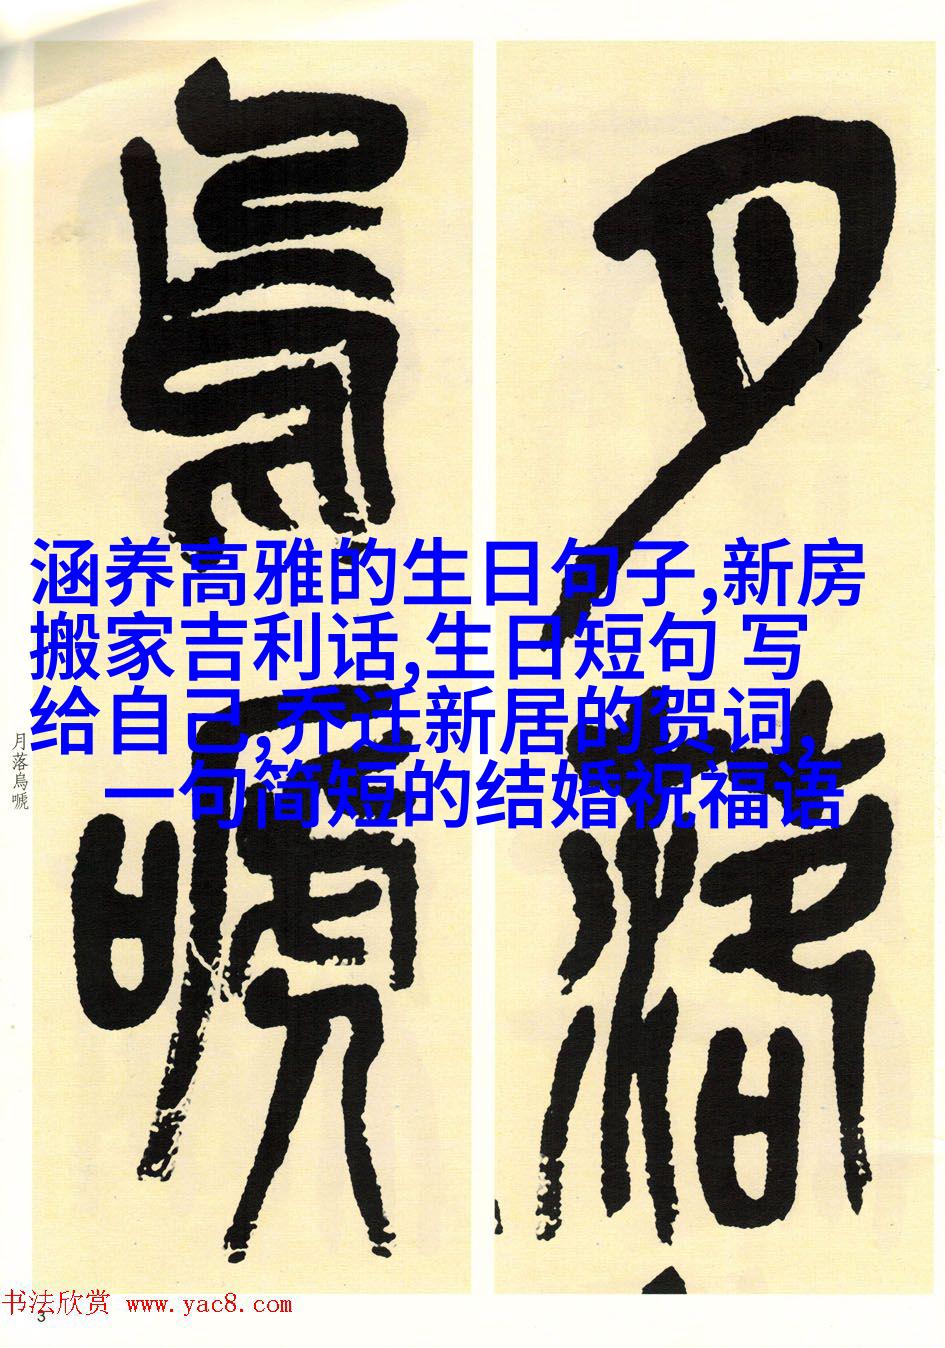 月落
烏嗁
涵养高雅的生日句子,新房
搬家吉利话,生日短句 写
给自己,乔迁新居的贺词,
一句简短的结婚祝福语
月落烏嗁
书法欣赏 www.yac8.com
3